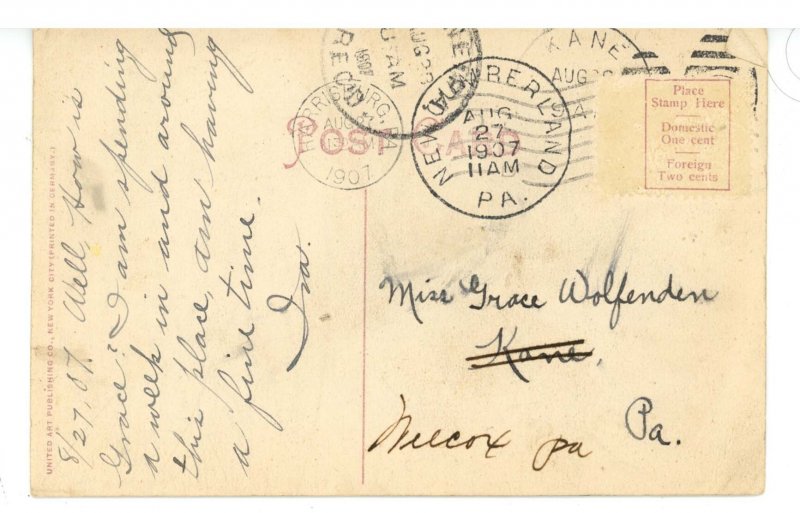 8/27, 07. Well, How is
Grace? I am spending
a week in and around
this place, am having
a fine time.
Ira.
UNITED ART PUBLISHING CO., NEW YORK CITY (PRINTED IN GERMANY.)
POST CARD
HARRISBURG,
AUG
1907
REC'D
AUG
AM
NEW CUMBERLAND
AUG
27
1907
11AM
PA.
KANE
AUG
Place
Stamp Here
Domestic
One cent
Foreign
Two cents
Miss Grace Wolfenden
Kane,
Pa.
Wilcox pa